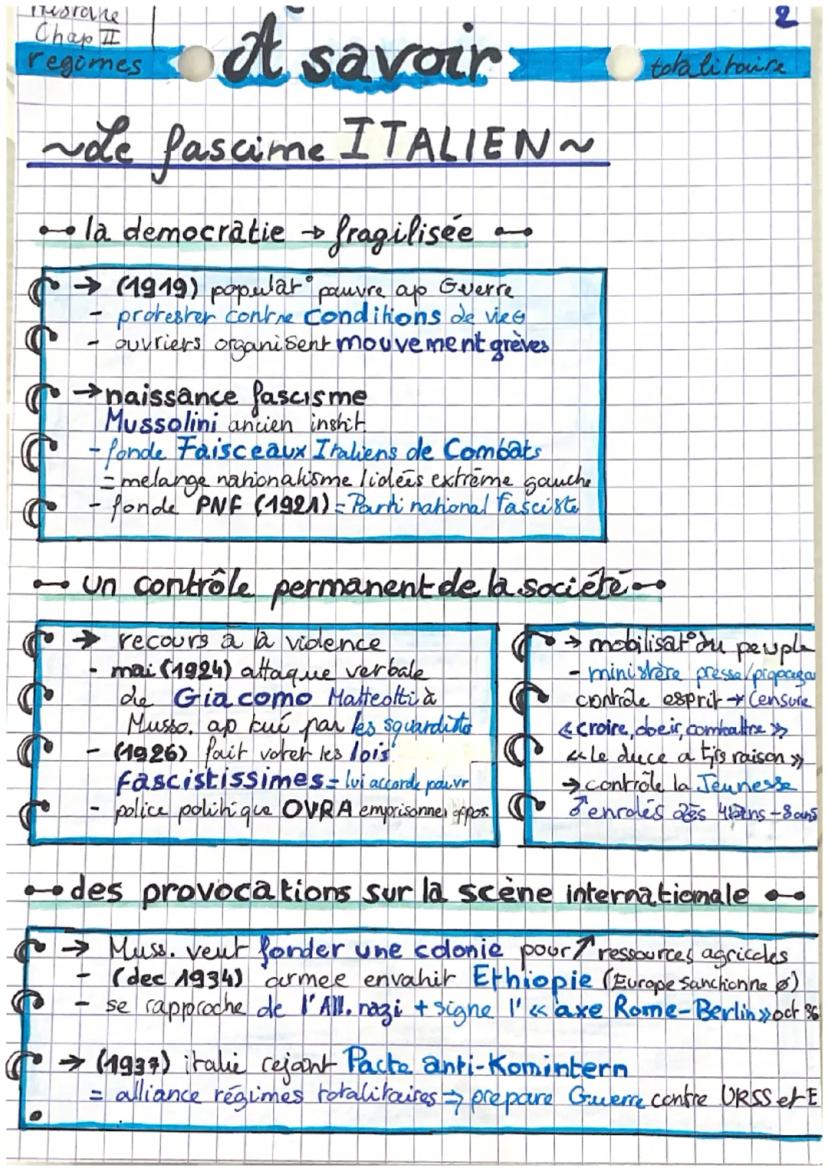 Histoire
Chap II
2
regimes
À savoir
totalitaire
~Le fascime ITALIEN~
la democratie → fragilisée
→ (1919) populat° pauvre ap Guerre
- protester contre conditions de vies
- ouvriers organisent mouvement grèves
→ naissance fascisme
Mussolini ancien instit.
- fonde Faisceaux Italiens de Combats
= melange nationalisme / idées extrême gauche
- fonde PNF (1921) = Parti national fasciste
un contrôle permanent de la société
→ recours à la violence
- mai (1924) attaque verbale
de Giacomo Matteotti à
Musso. ap tué par les squardisto
- (1926) fait voter les lois
fascistissimes = lui accorde pouvr
- police politique OVRA emprisonner oppos.
→ mobilisat° du peuple
- ministère presse/propaga
contrôle esprit → censure
« croire, obeir, combattre »
« Le duce a tjs raison »
→ contrôle la Jeunesse
♂ enrolés dès - 8 ans
des provocations sur la scène internationale
→ Muss. veut fonder une colonie pour ↗ ressources agricoles
- (dec 1934) armee envahir Ethiopie (Europe sanctionne ø)
- se rapproche de l'All. nazi + signe l' « axe Rome-Berlin » oct 36
→ (1937) italie rejoint Pacte anti-Komintern
= alliance régimes totalitaires → prepare Guerre contre URSS et E